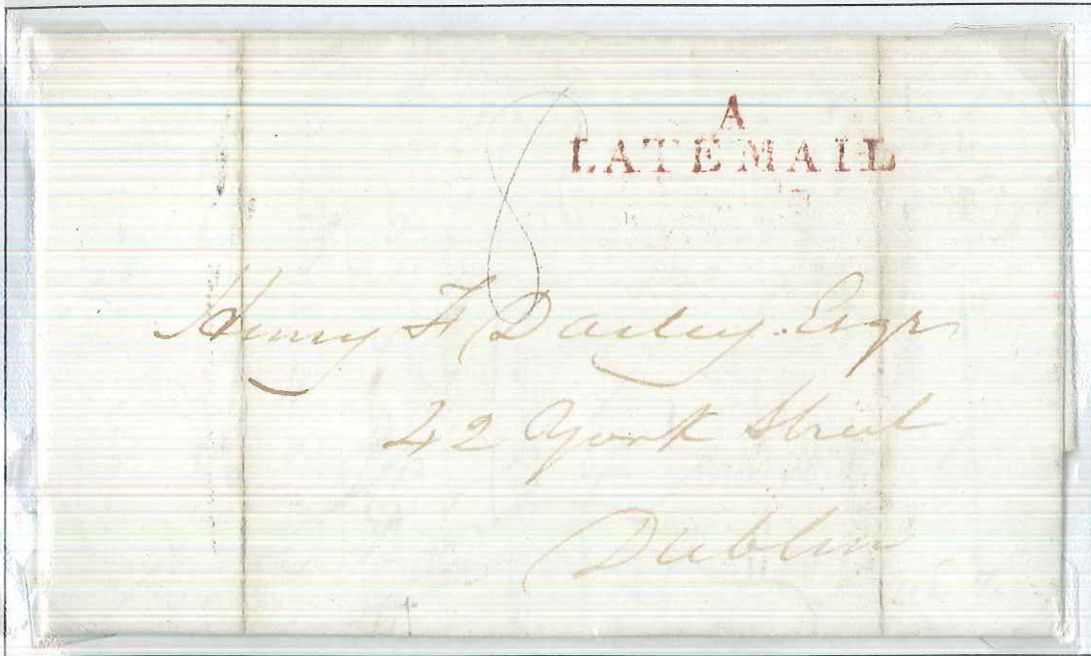 A
LATE MAIL
8
Henry F Darley Esqr
42 York Street
Dublin